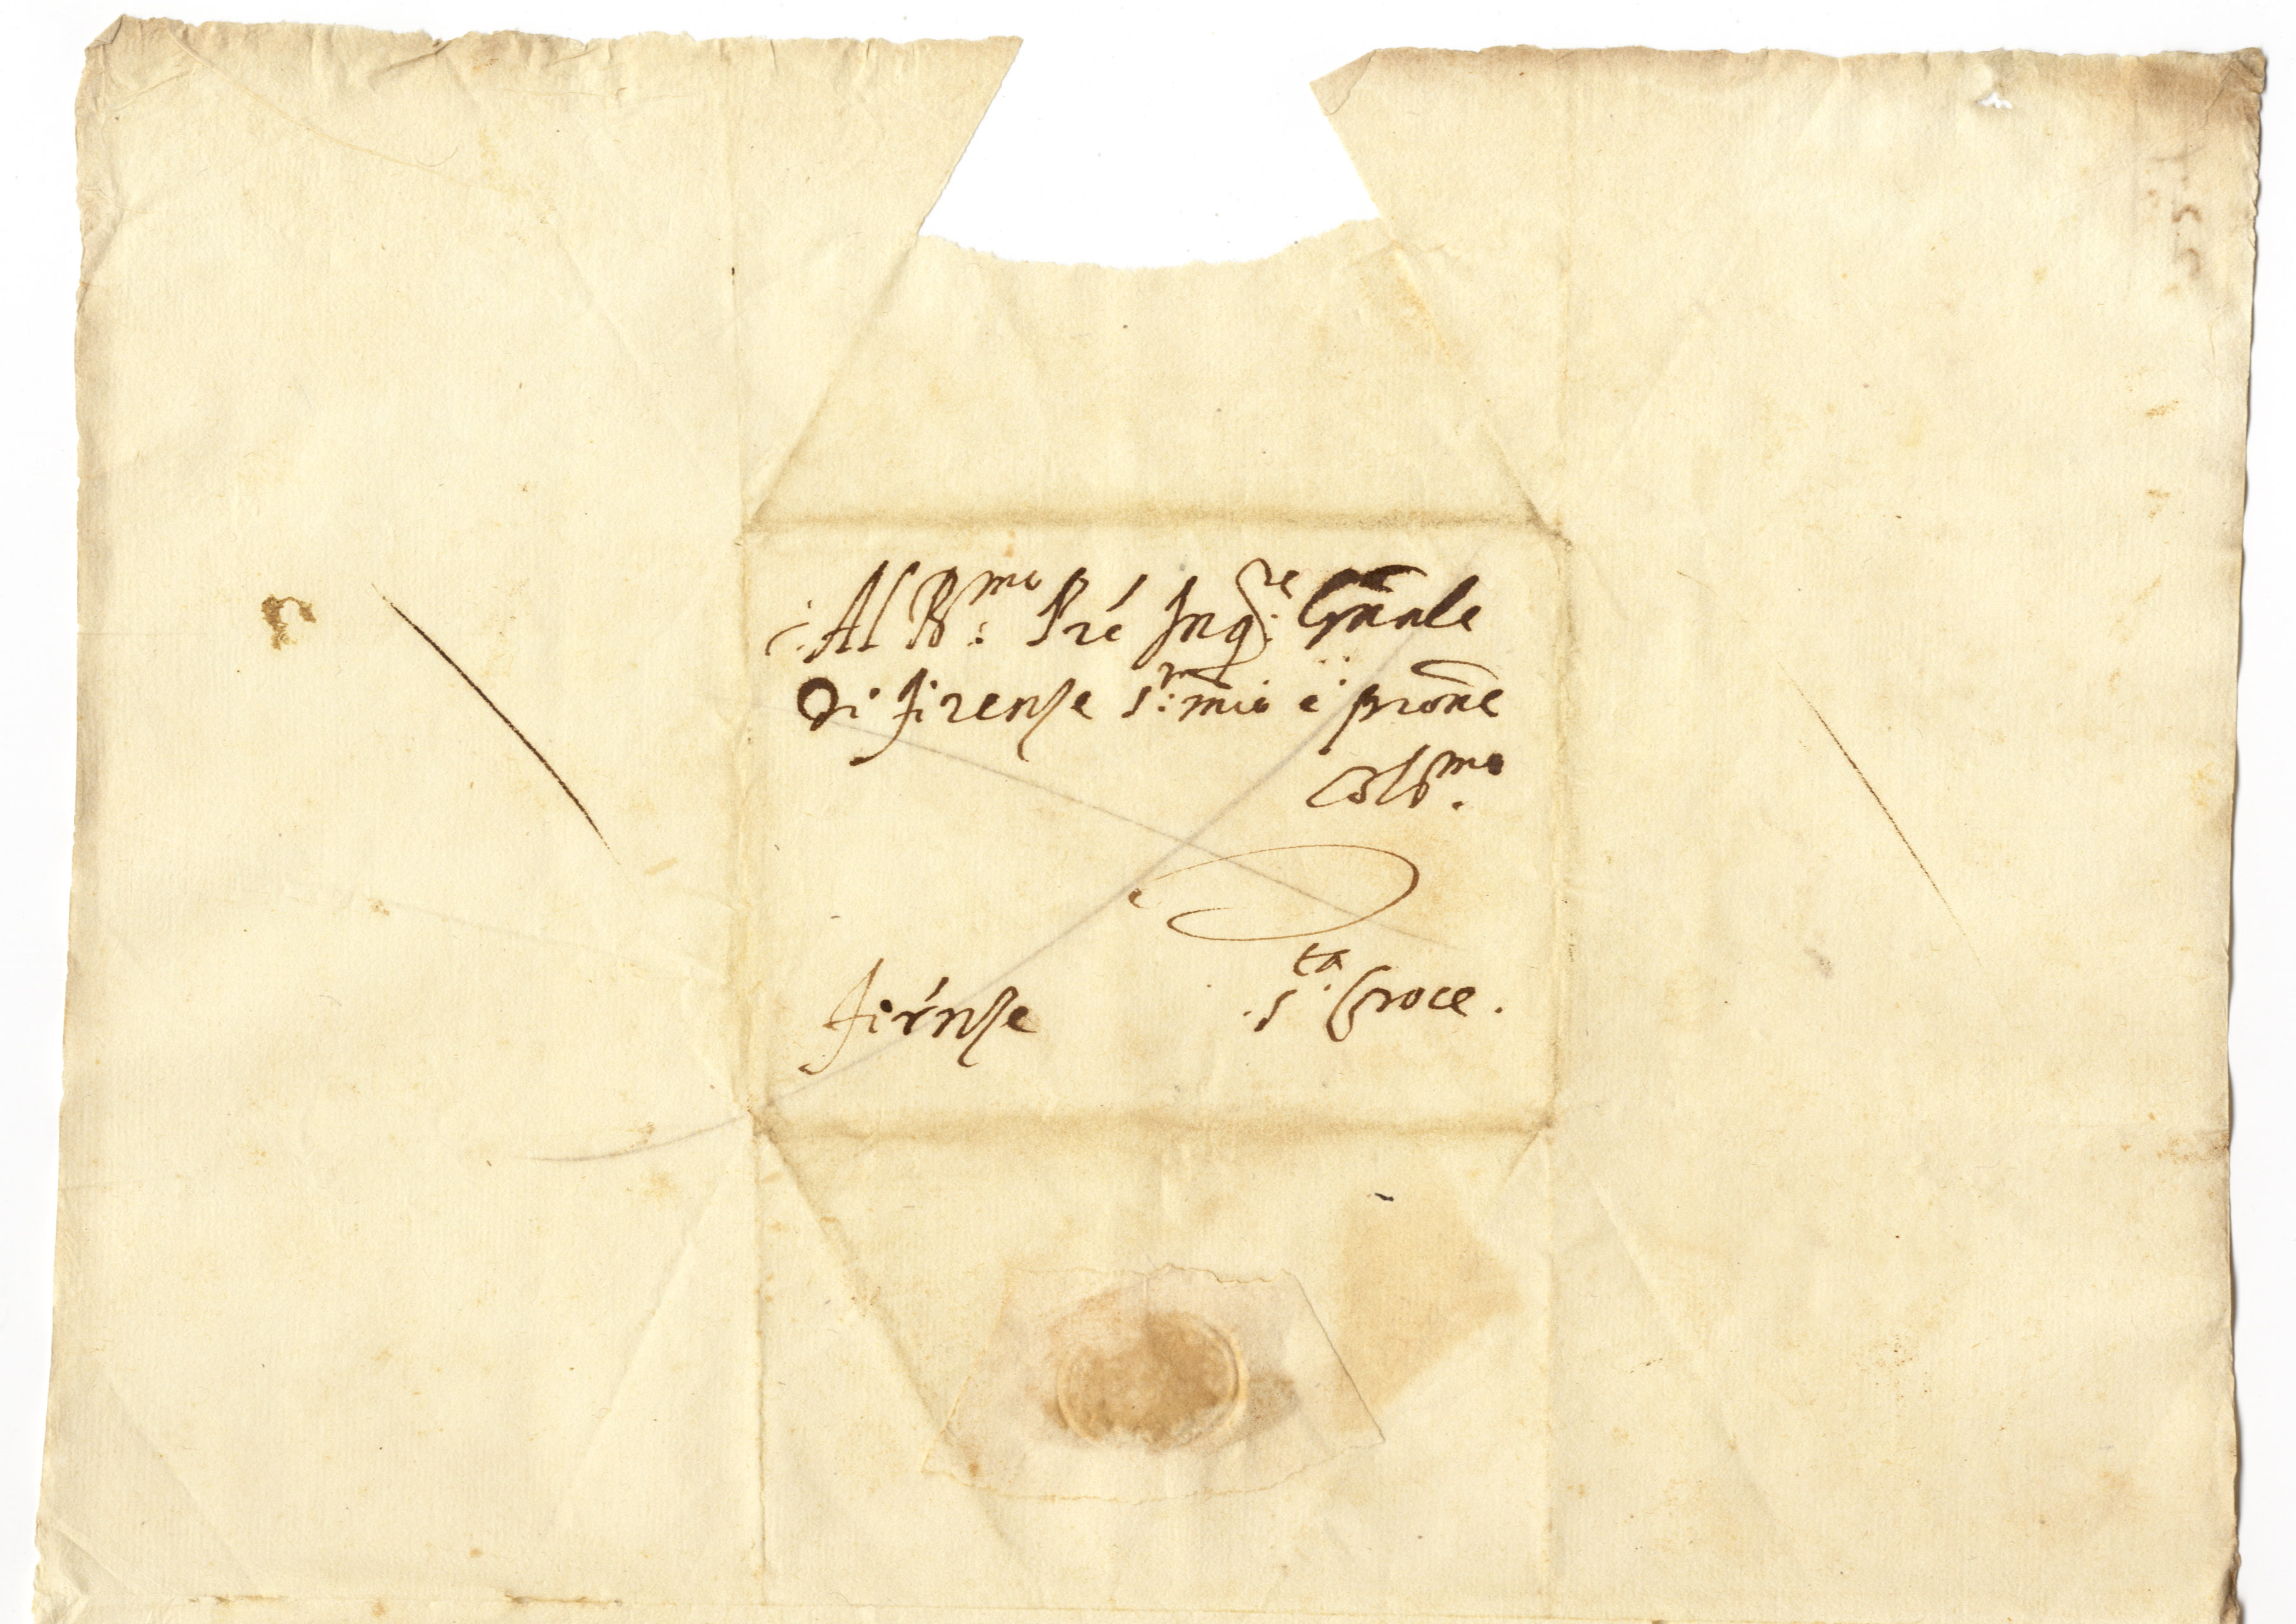 Al R.mo Pre Inq.re Gnãle
Di Firenze S.r mio e prone
Col.mo
Firenze S.ta Croce.